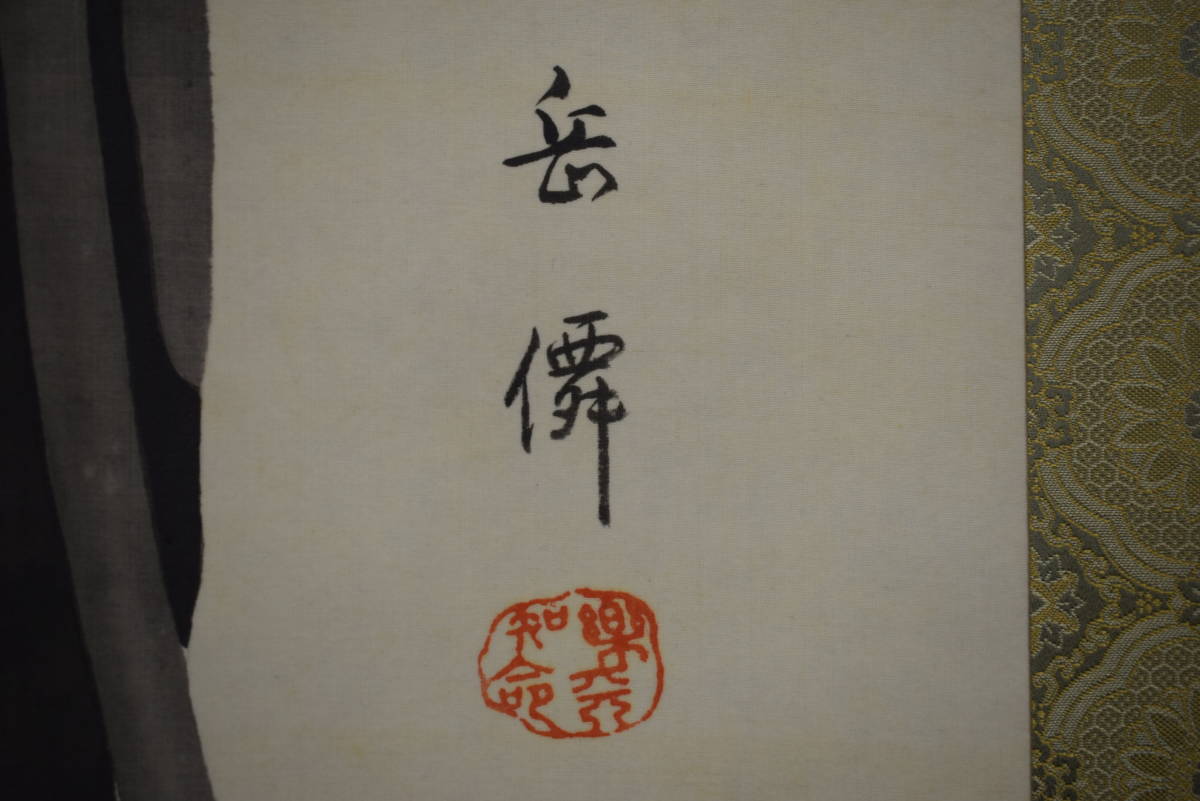 岳僊
樂天
知命